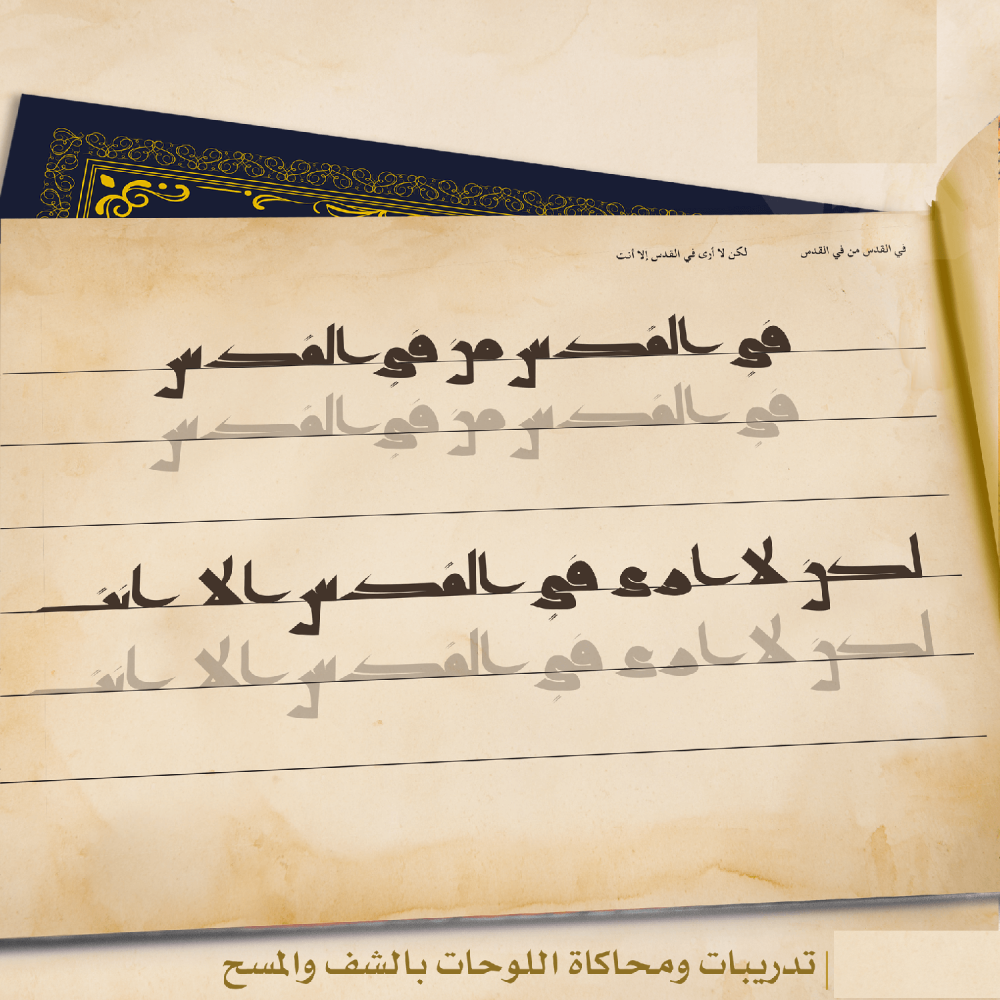 في القدس من في القدس
لكن لا أرى في القدس إلا أنت
في القدس من في القدس
في القدس من في القدس
لكن لا ارى في القدس الا انت
لكن لا ارى في القدس الا انت
تدريبات ومحاكاة اللوحات بالشف والمسح